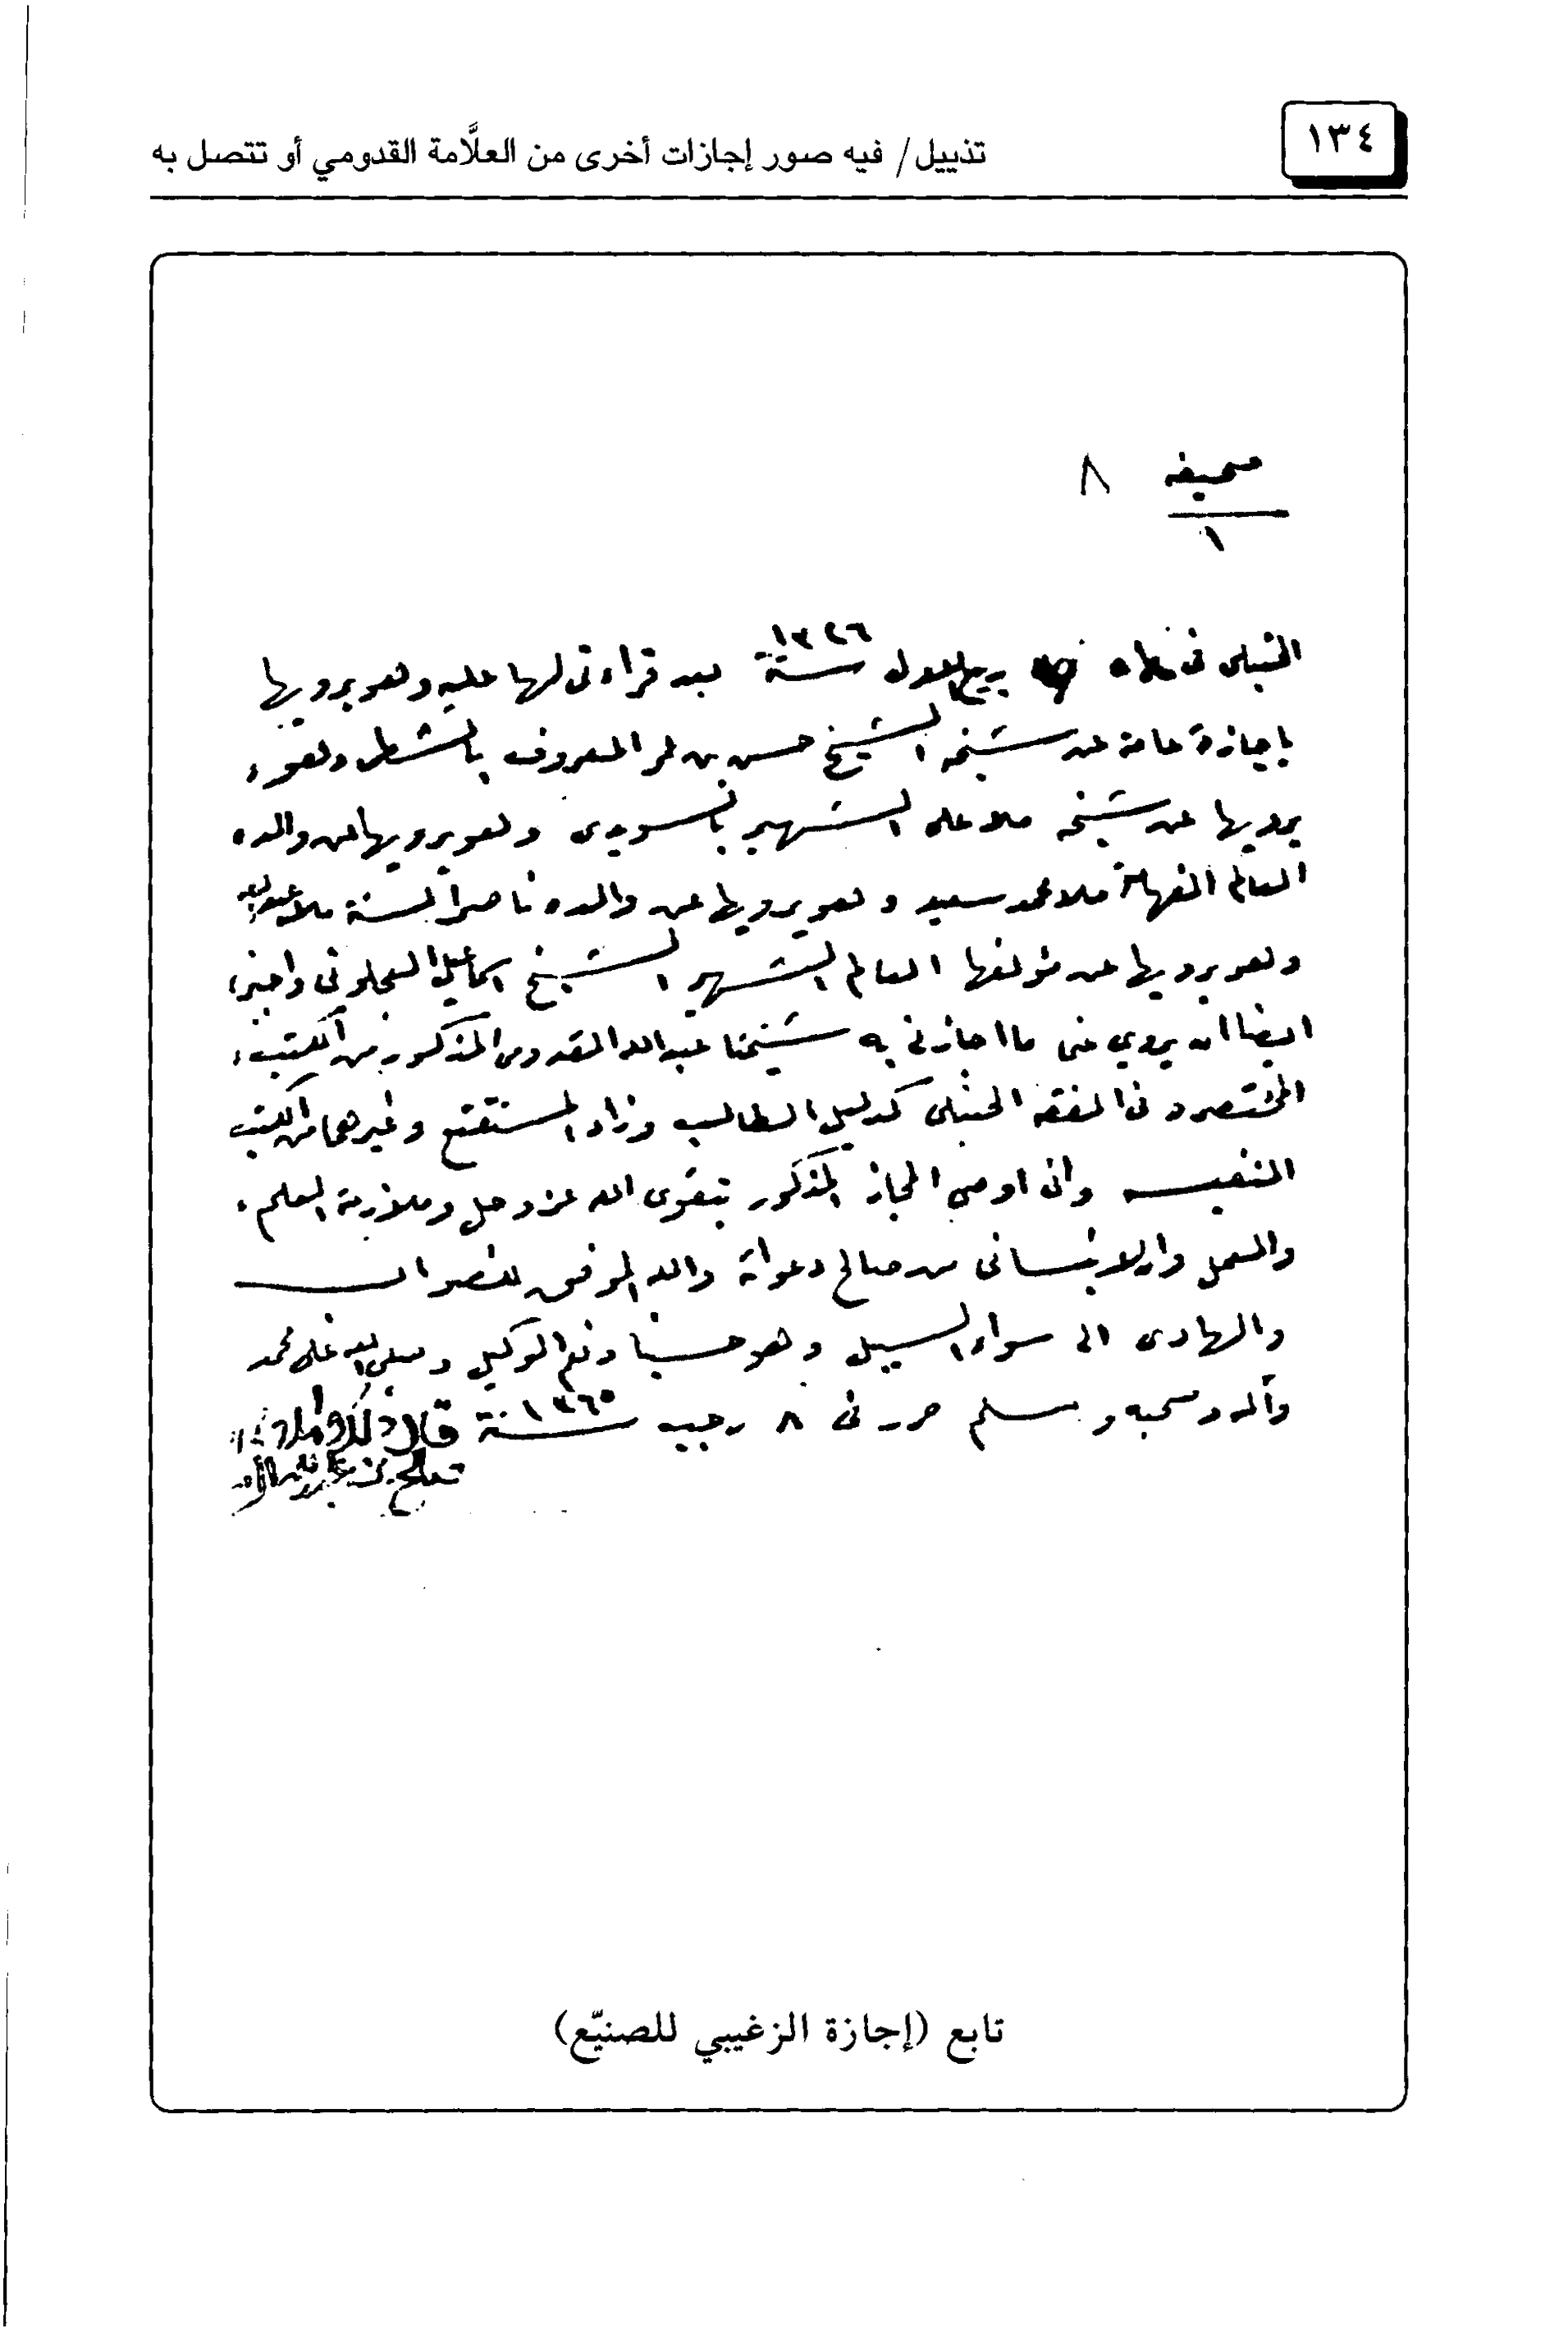 ١٣٤
تذييل/ فيه صور إجازات أخرى من العلَّامة القدومي أو تتصل به
صحيفه ٨
١
الحنبلى فى ربيع الاول سنة ١٣٢٦ بعد قراءتى لها عليه وهو يرويها
باجازة عامة عن شيخه الشيخ حسن بن عمر المعروف بالشطى وهو
يرويها عن شيخه ملا على الشهير بالسويدى وهو يرويها عن والده
العالم الفهامة ملا محمد سعيد وهو يرويها عن والده ناصر السنة ملا عبدالله
وهو يرويها عن مؤلفها العالم الشهير الشيخ اسماعيل العجلونى واجيزه
ايضا ان يروي عنى ما اجازنى به شيخنا عبدالله القدومى المذكور من الكتب
المختصره فى الفقه الحنبلى كدليل الطالب وزاد المستقنع وغيرهما من الكتب
النفيسه وانى اوصى المجاز المذكور بتقوى الله عز وجل وملازمة العلم
والعمل وان لا ينسانى من صالح دعواته والله الموفق للصواب
والهادى الى سواء السبيل وهو حسبنا ونعم الوكيل وصلى الله على محمد
وآله وصحبه وسلم حرر فى ٨ رجب سنة ١٣٦٥ قال ذلك واملاه
صالح بن
تابع (إجازة الزغيبي للصنيّع)